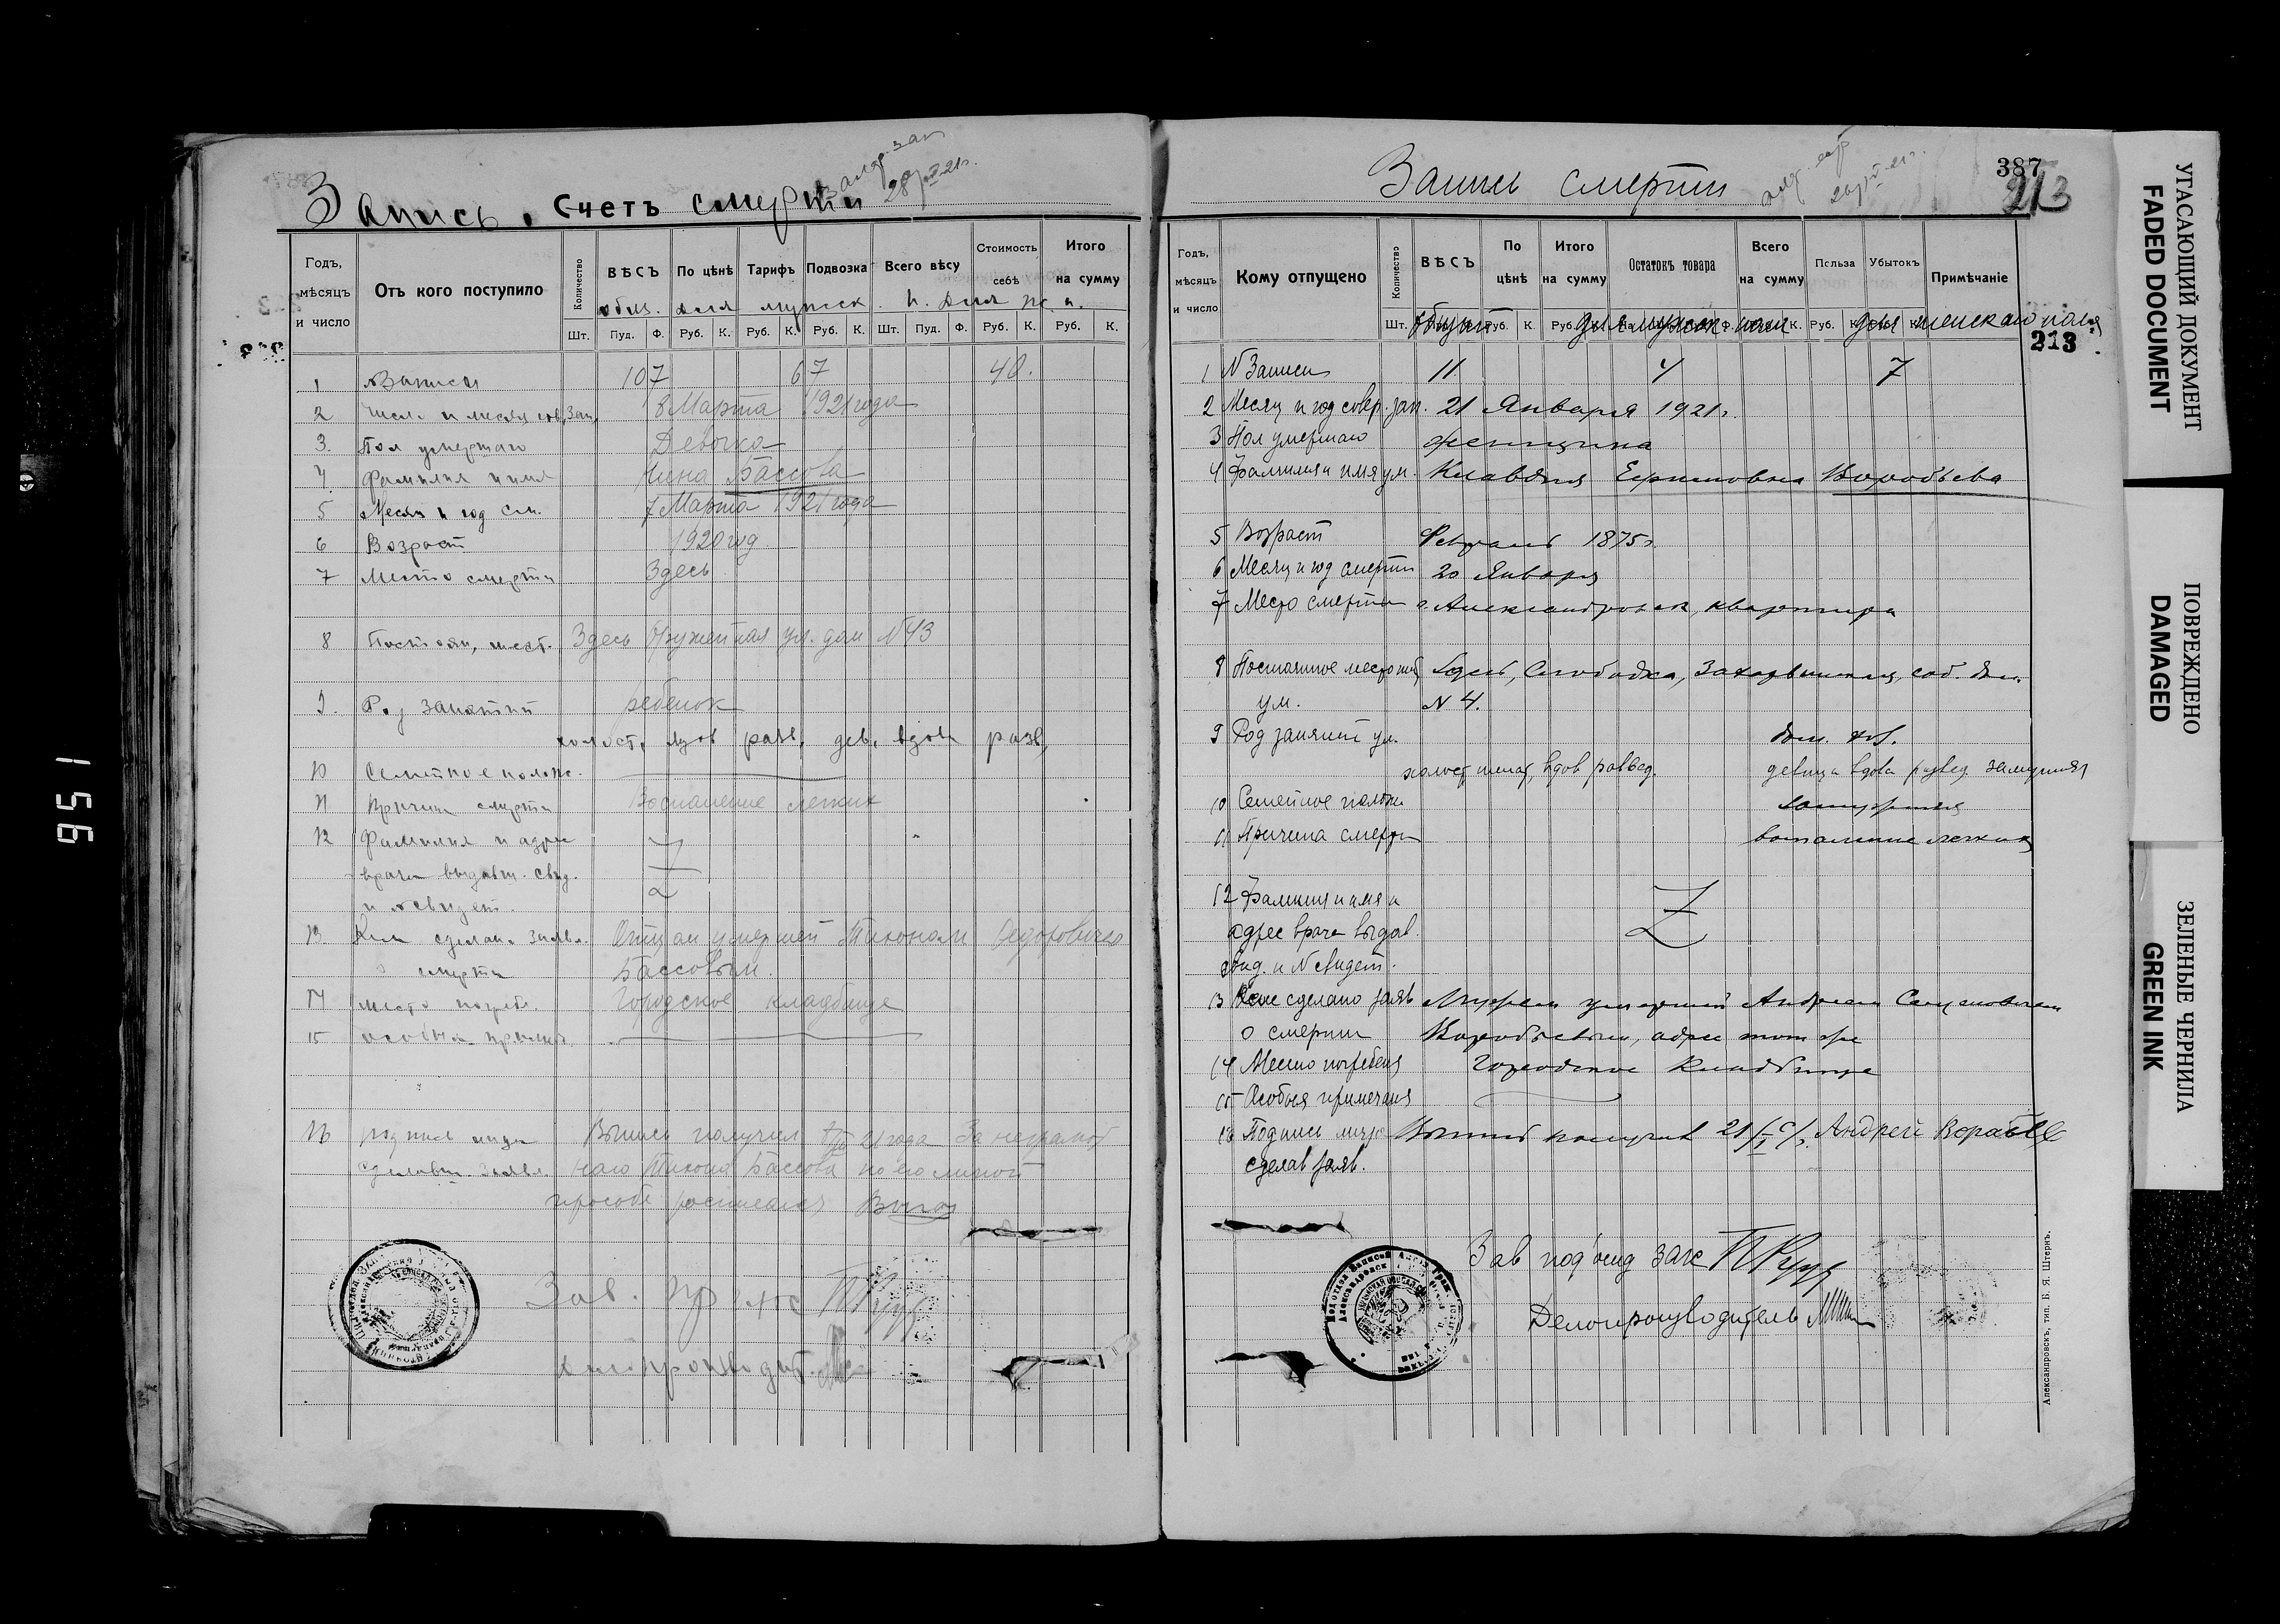 Запись. Счетъ смерти
28/IV-21г.
Годъ, мѣсяцъ и число
Отъ кого поступило
Количество
ВѢСЪ
По цѣнѣ
Тарифъ
Подвозка
Всего вѣсу
Стоимость себѣ
Итого на сумму
общ. для мужск. п. для ж. п.
Шт. Пуд. Ф. Руб. К. Руб. К. Руб. К. Шт. Пуд. Ф. Руб. К. Руб. К.
1 №Записи 107 67 40.
2 Число и месяц сов. Зап. 8 Марта 1921 года
3. Пол умершаго Девочка
4. Фамилия и имя Нина Бассова
5 Месяц и год См. 7 Марта 1921 года
6 Возраст 1920 год.
7 Место смерти Здесь
8 Постоян. мест. Здесь Оружейная ул. дом N43
9. Род занятий ребенок
холост. вдов разв. дев. вдова разв.
10 Семейное полож.
11 Причина смерти Воспаление легких
12 Фамилия и адрес
врача выдавш. свид.
и №свидет.
Z
13. Кем сделан. заявл. Отцом умершей Тихоном Федоровичем
о смерти Бассовым.
14 место погреб. Городское кладбище
15 особыя примеч.
16 подпись лица Выпись получил 8/III 21 года За неграмот
сделавш. заявл. наго Тихона Бассова по его личной
просьбе росписался
Зав. п/о загс
Делопроизводит.
Запись смерти
387
213
Годъ, мѣсяцъ и число
Кому отпущено
Количество
ВѢСЪ
По цѣнѣ
Итого на сумму
Остатокъ товара
Всего на сумму
Польза
Убытокъ
Примѣчаніе
Шт. общий для мужск пола для женскаго пола
213
1 N Записи 11 4 7
2 Месяц и год совер. зап. 21 Января 1921г.
3 Пол умершаго женщина
4 Фамилия и имя ум. Клавдия Ефимовна Воробьева
5 Возраст Февраль 1875г.
6 Месяц и год смерти 20 Января
7 Место смерти г. Александровск, квартира
8 Постоянное место жит. Здесь, Слободка, соб. дом
ум. N 4.
9 Род занятий ум. дом. хоз.
холост, женат, вдов развед. девица вдова развед. замужняя
10 Семейное полож. замужняя
11 Причина смерти воспаление легких
12 Фамилия и имя и
адрес врача выдав.
свид. и N свидет.
Z
13 Кем сделано заяв Мужем умершей Андреем Семеновичем
о смерти Воробьевым, адрес тот же
14 Место погребения Городское Кладбище
15 Особыя примечания
16 Подпись лица Выпись получил 21/I с/г. Андрей Воробьев
сделав заяв.
Зав под'отд загс
Делопроизводитель
Александровскъ, тип. Б. Я. Штернъ.
УГАСАЮЩИЙ ДОКУМЕНТ
FADED DOCUMENT
ПОВРЕЖДЕНО
DAMAGED
ЗЕЛЕНЫЕ ЧЕРНИЛА
GREEN INK
1 56